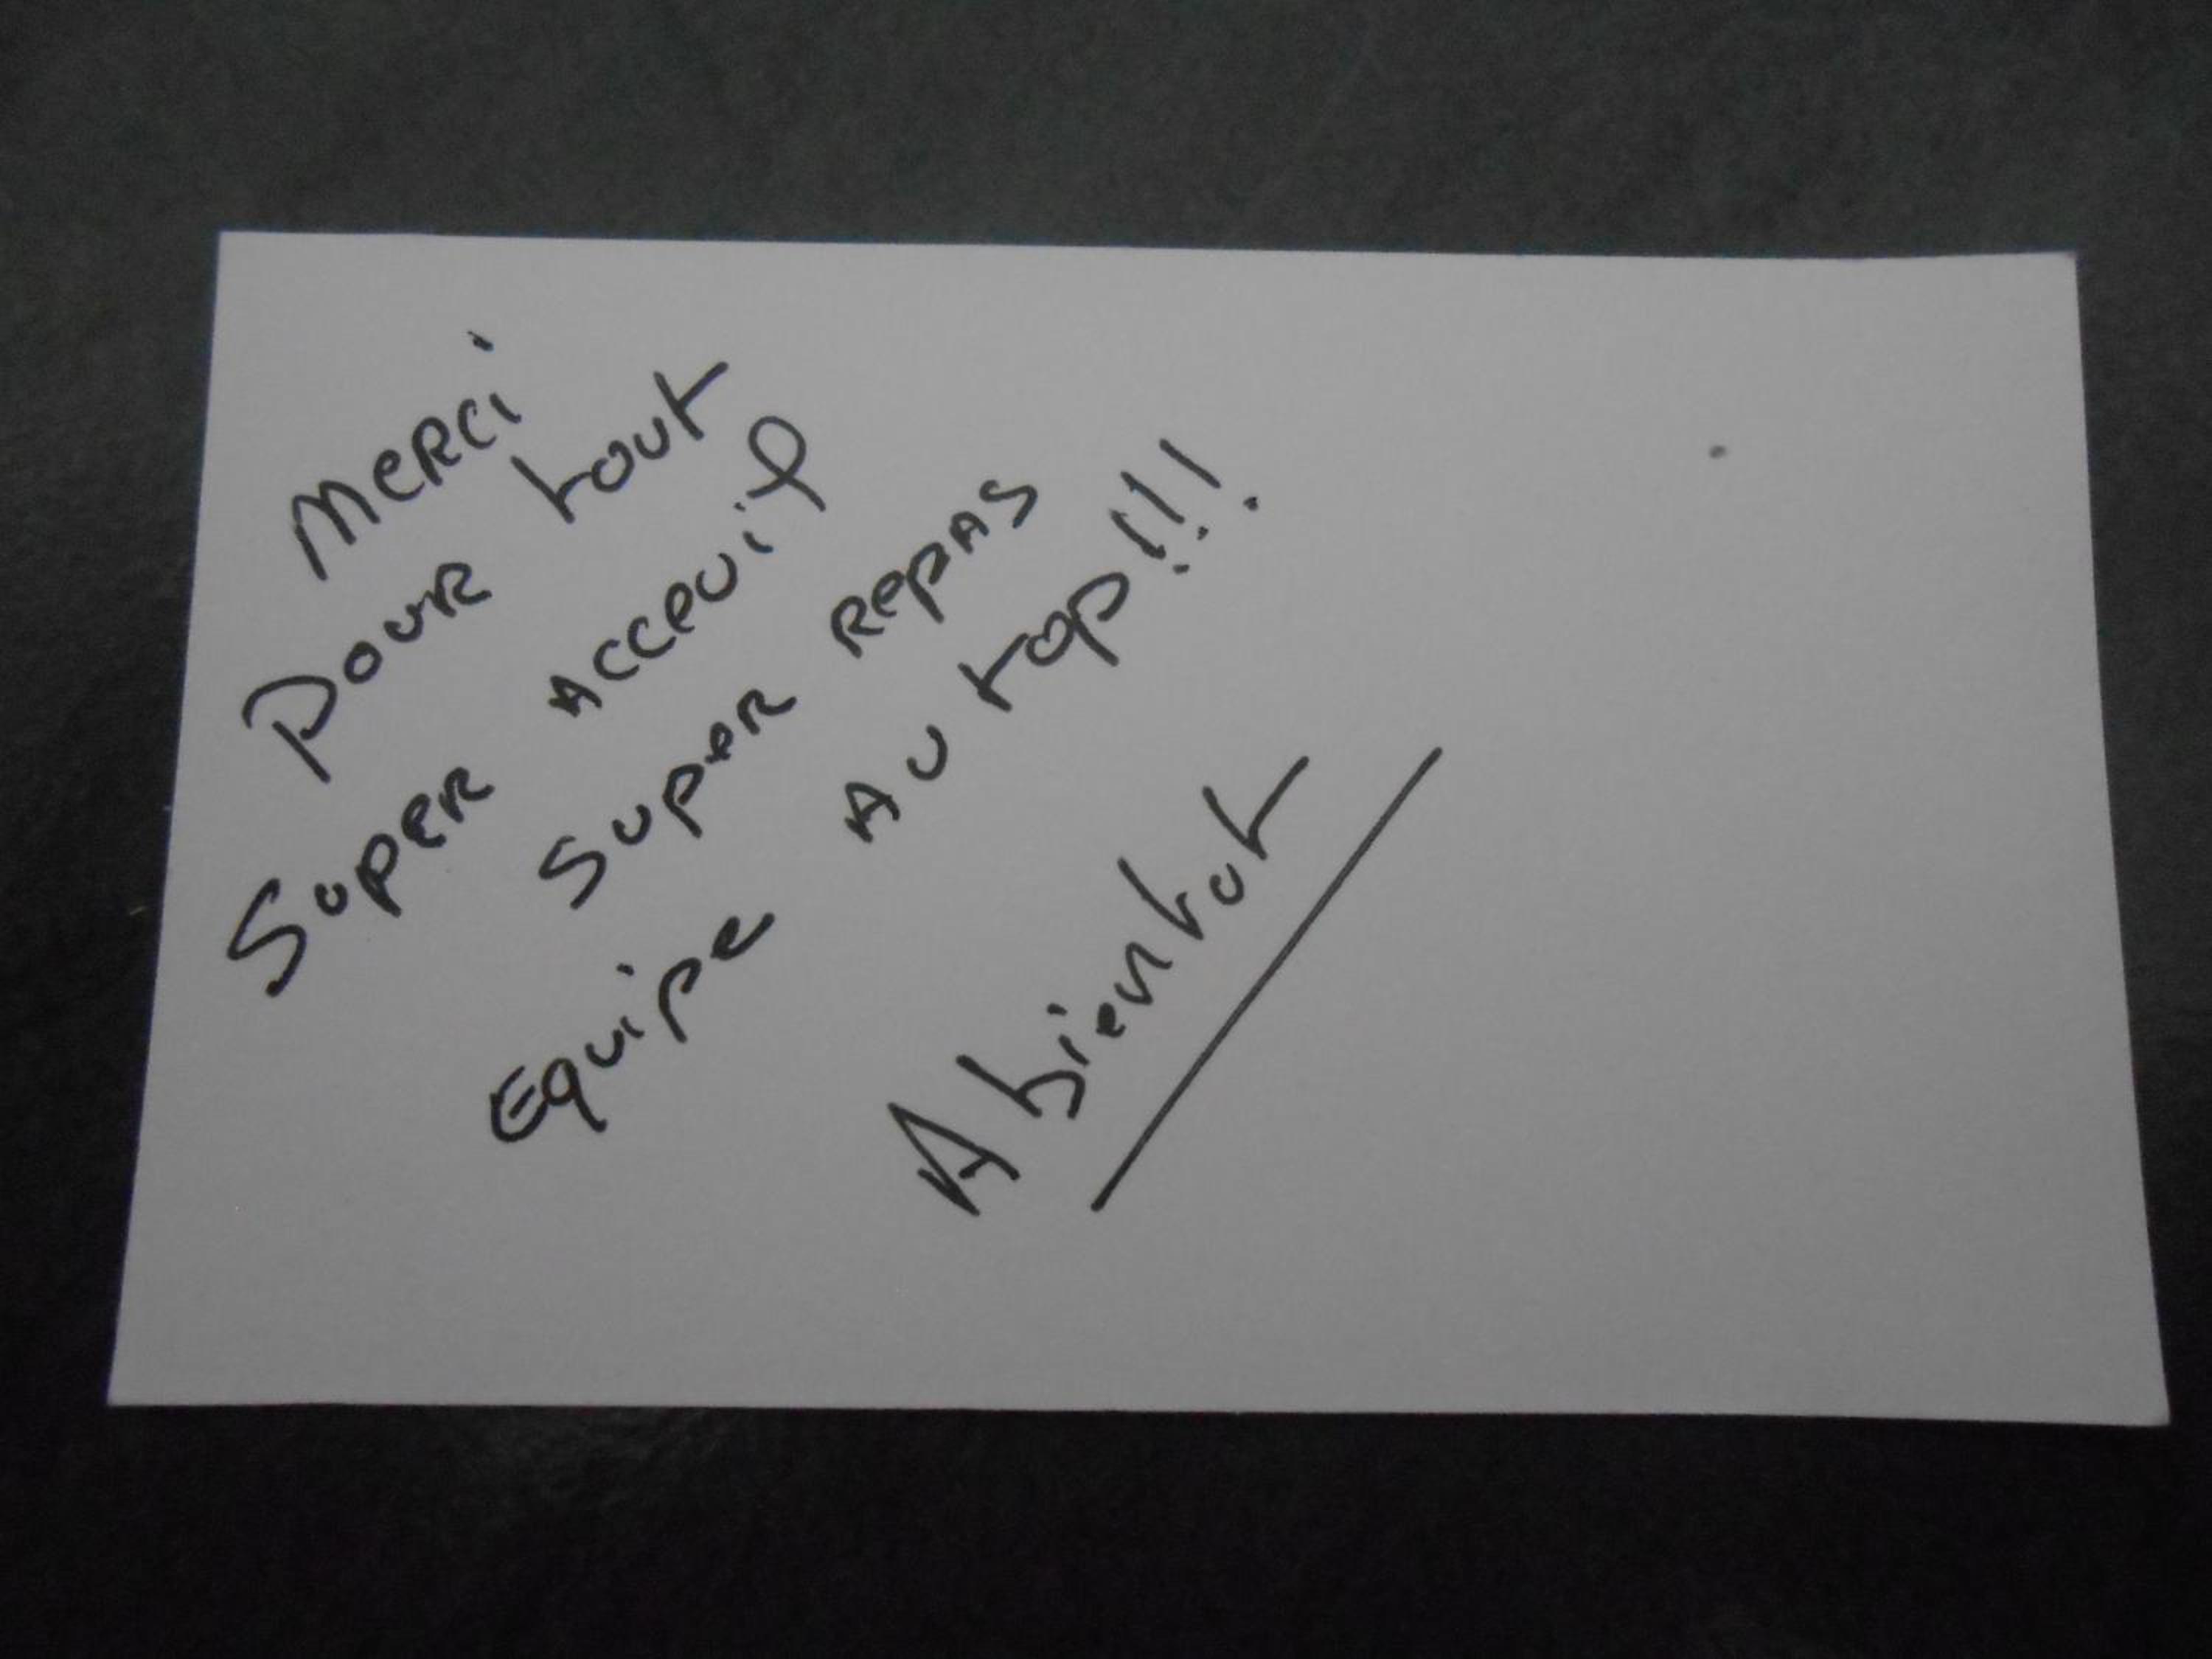 Merci
Pour tout
Super acceuil
Super repas
Equipe au top!!!
Abientot